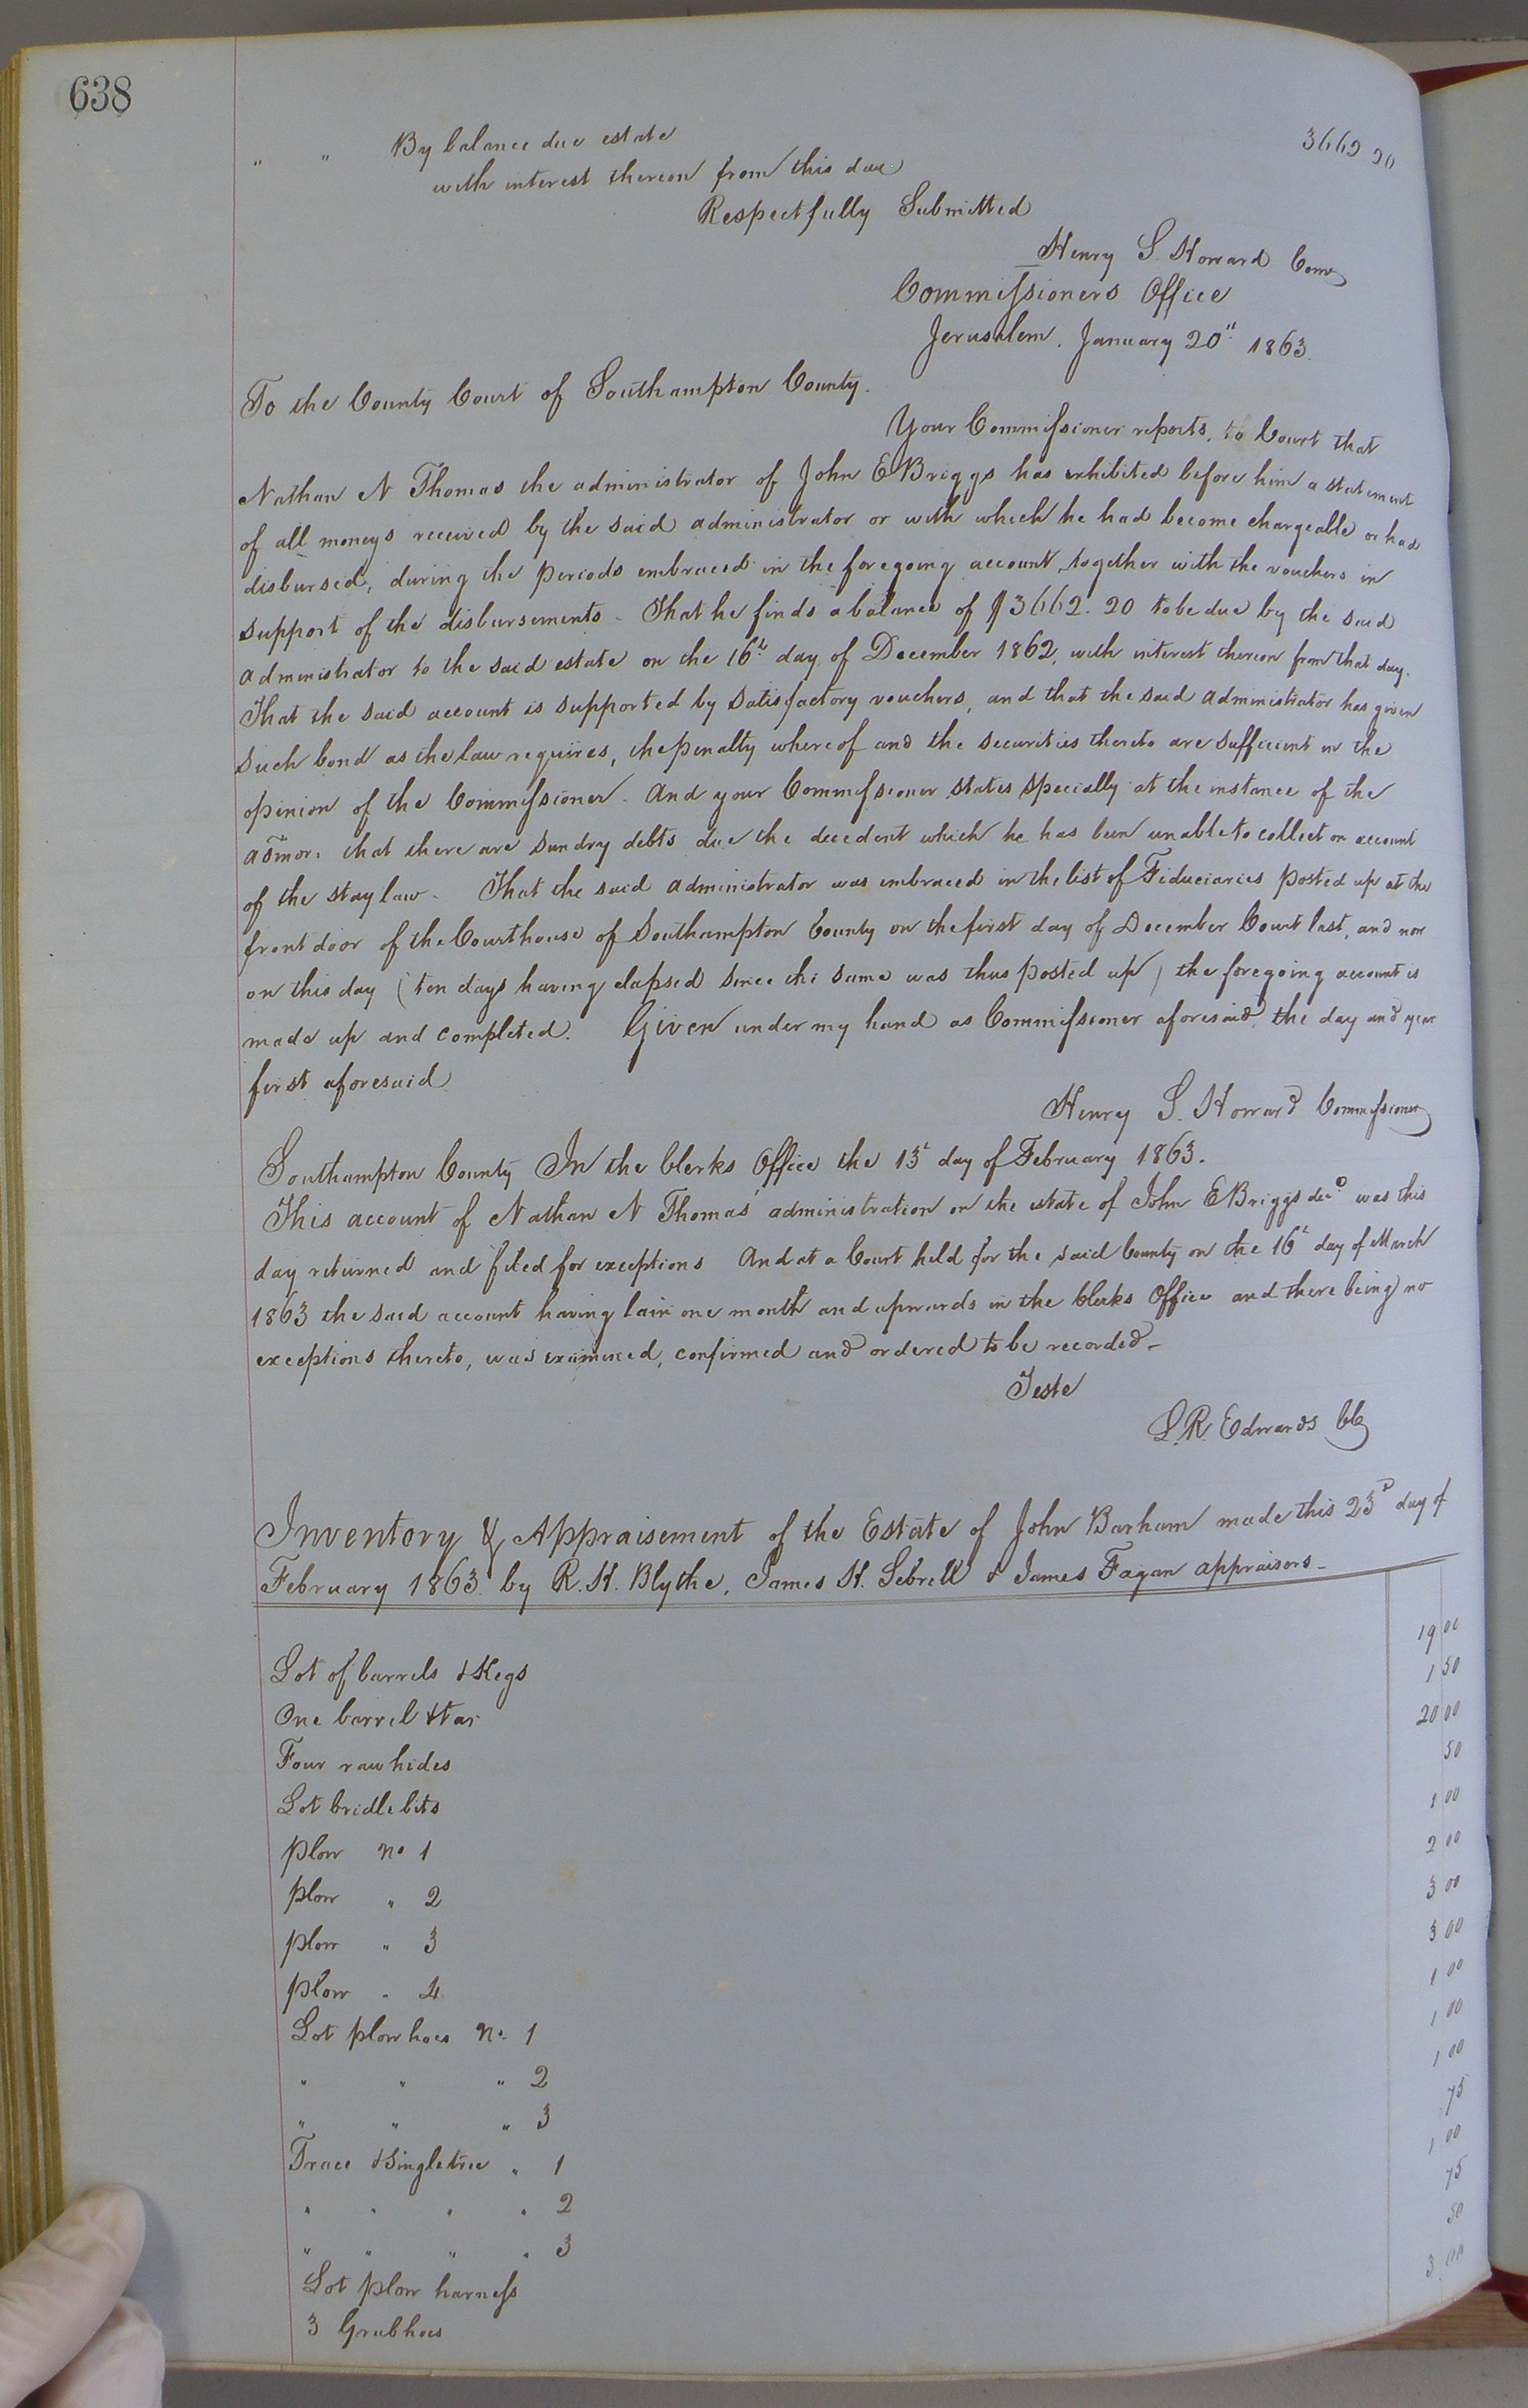 638
" " By balance due estate 3662 20
with interest thereon from this date
Respectfully Submitted
Henry S. Howard Comr
Commissioners Office
Jerusalem. January 20th 1863.
To the County Court of Southampton County.
Your Commissioner reports, to Court that
Nathan N Thomas the administrator of John E Briggs has exhibited before him a statement
of all moneys received by the said administrator or with which he had become chargeable or had
disbursed, during the periods embraced in the foregoing account, together with the vouchers in
support of the disbursements. That he finds a balance of $3662.20 to be due by the said
administrator to the said estate on the 16th day of December 1862, with interest thereon from that day.
That the said account is supported by satisfactory vouchers, and that the said administrator has given
such bond as the law requires, the penalty whereof and the securities thereto are sufficient in the
opinion of the Commissioner. And your Commissioner states specially at the instance of the
admor. that there are sundry debts due the decedent which he has been unable to collect on account
of the stay law. That the said administrator was embraced in the list of Fiduciaries posted up at the
front door of the Courthouse of Southampton County on the first day of December Court last, and now
on this day (ten days having elapsed since the same was thus posted up) the foregoing account is
made up and completed. Given under my hand as Commissioner aforesaid, the day and year
first aforesaid
Henry S. Howard Commissioner
Southampton County In the Clerks Office the 13th day of February 1863.
This account of Nathan N Thomas' administration on the estate of John E Briggs decd was this
day returned and filed for exceptions And at a Court held for the said County on the 16th day of March
1863 the said account having lain one month and upwards in the Clerks Office and there being no
exceptions thereto, was examined, confirmed and ordered to be recorded.
Teste
L. R. Edwards CC
Inventory & Appraisement of the Estate of John Barham made this 23d day of
February 1863 by R. H. Blythe, James H. Sebrell & James Fagan appraisors.
Lot of barrels & Kegs 19 00
One barrel & tar 1 50
Four raw hides 20 00
Lot bridle bits 50
plow no 1 1 00
plow " 2 2 00
plow " 3 3 00
plow " 4 3 00
Lot plow hoes No 1 1 00
" " " 2 1 00
" " " 3 1 00
Trace & Singletree " 1 75
" " " " 2 1 00
" " " " 3 75
Lot plow harness 50
3 Grubhoes 3 00